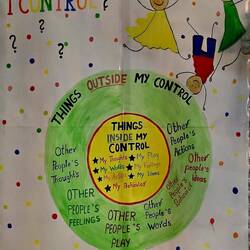 I CONTROL?
? ? ? ?
THINGS OUTSIDE MY CONTROL
THINGS
INSIDE MY
CONTROL
★ My Thoughts ★ My Play
★ My Words ★ My Feelings
★ My Actions ★ My Ideas
★ My Behavior
Other
People's
Thoughts
OTHER
PEOPLE'S
FEELINGS
OTHER
PEOPLE'S
PLAY
Other
People's
Words
Other
People's
Behavior
Other
people's
ideas
Other
People's
Actions